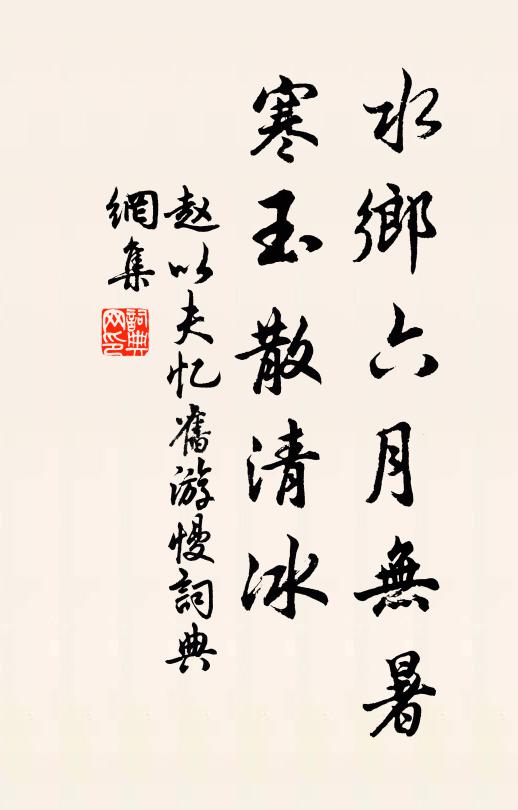 水鄉六月無暑
寒玉散清冰
赵以夫忆舊游慢詞典
網集
詞典
网印